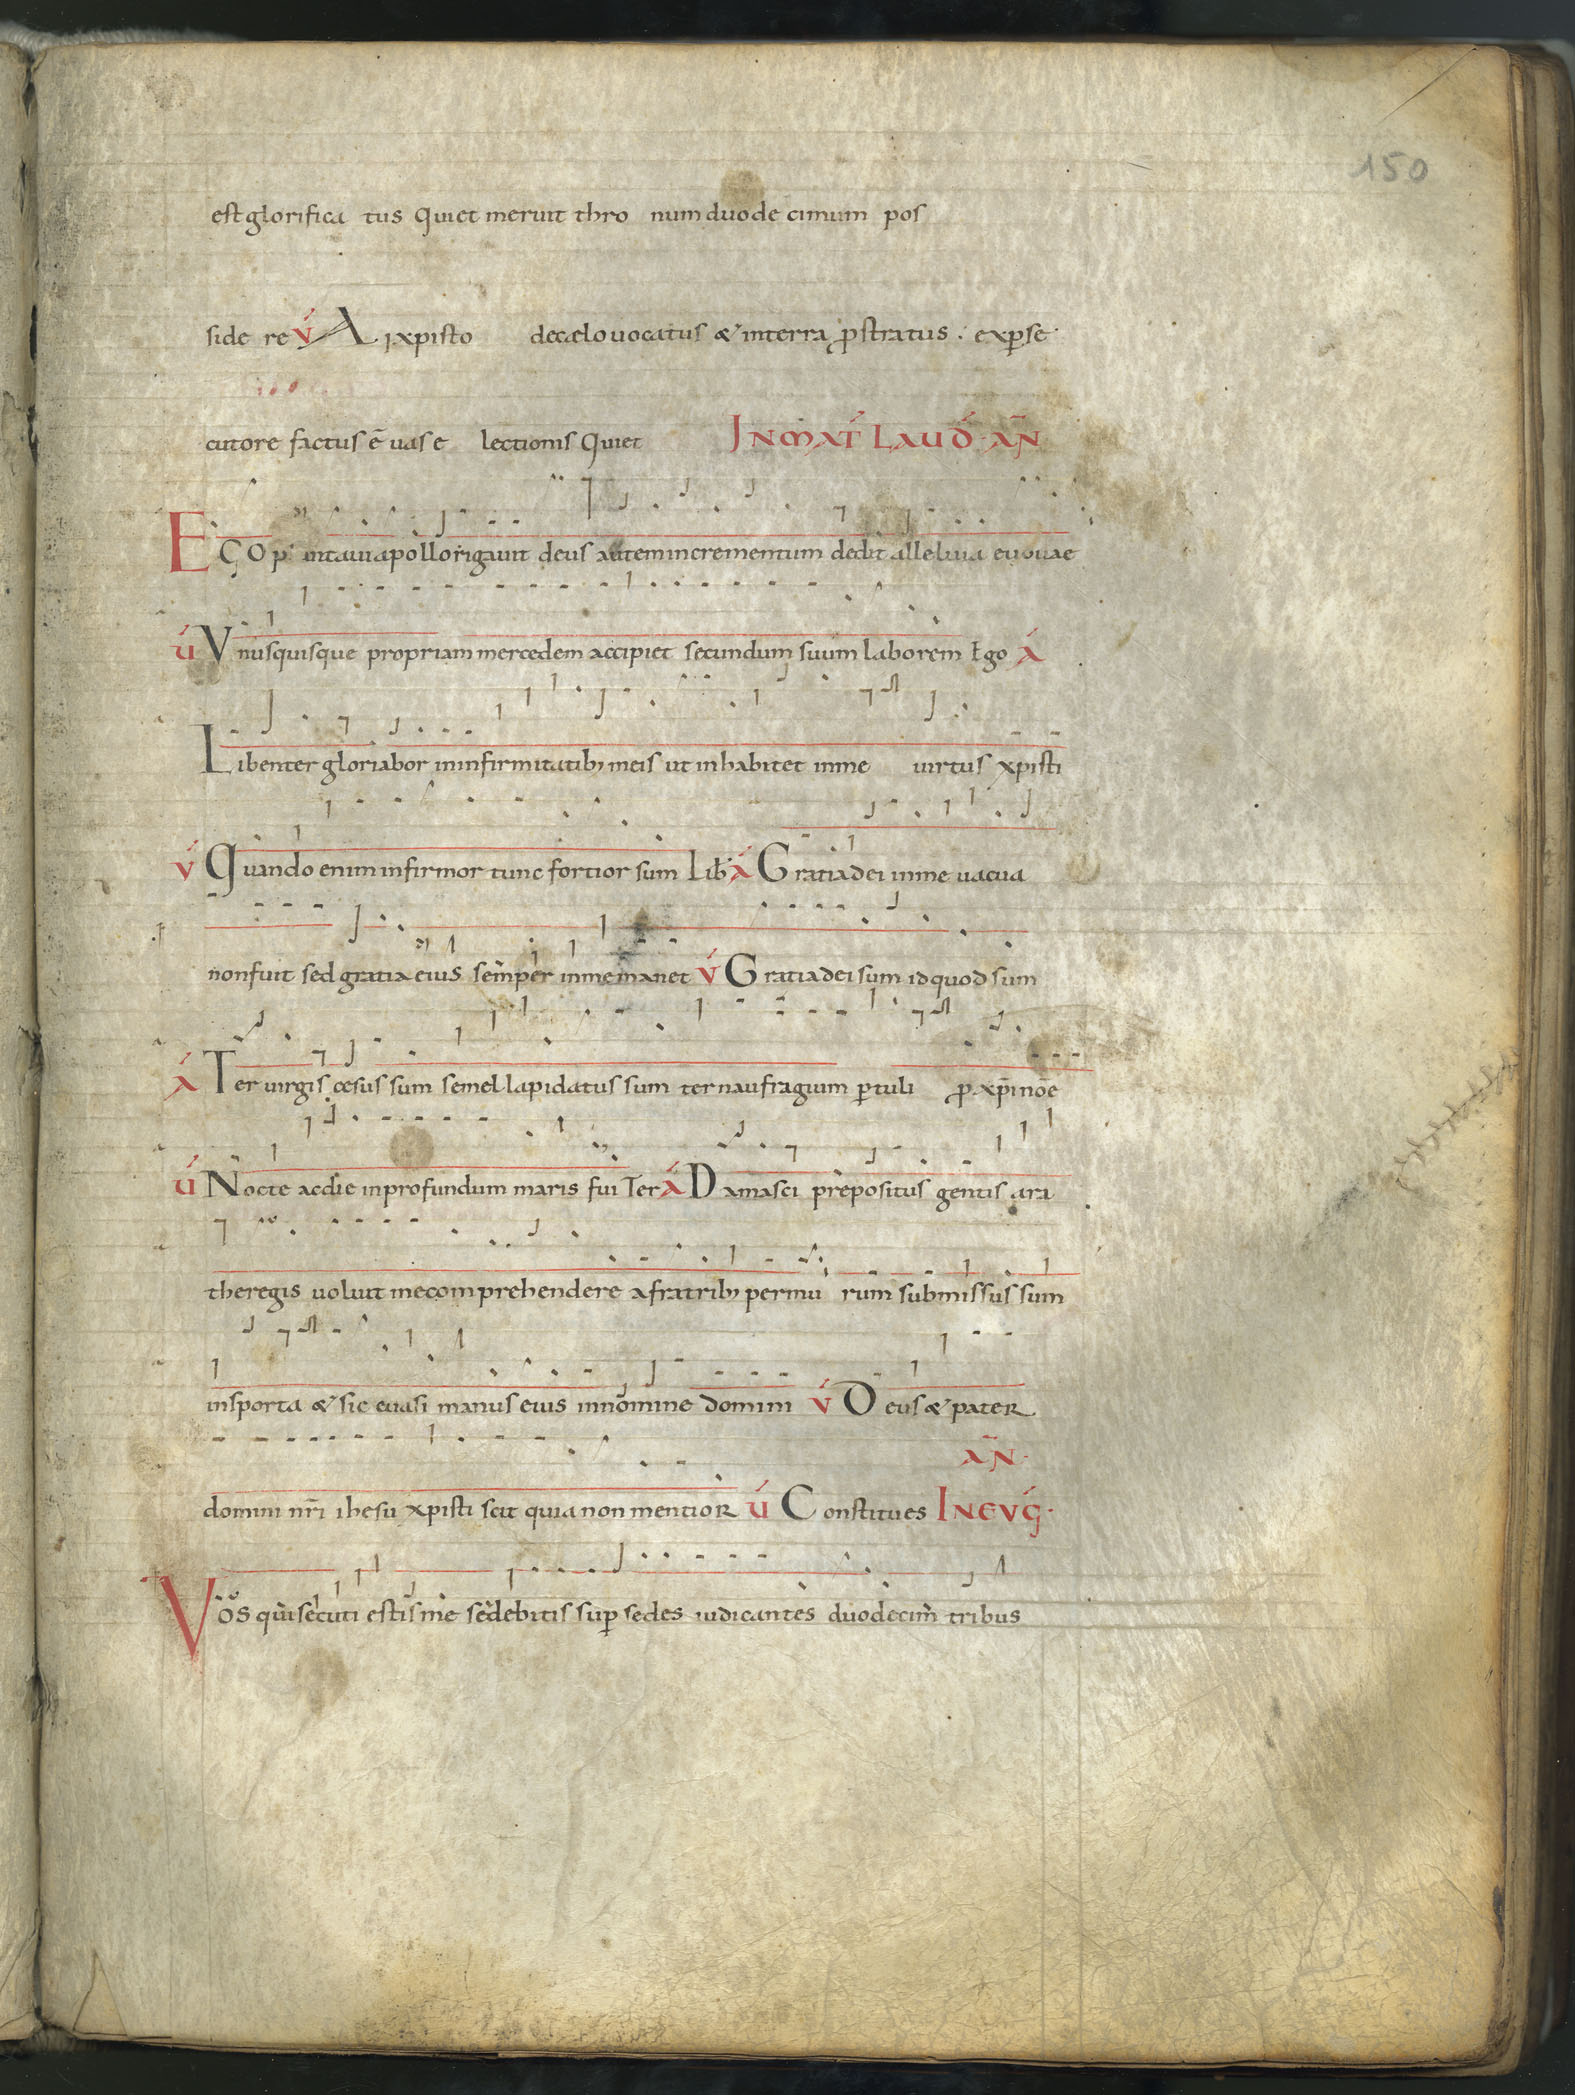 150
est glorifica tus Qui et meruit thro num duode cimum pos
side re V̄ A ixpisto de cælo uocatus & in terra pstratus . ex pse
cutore factus ē uas e lectionis Qui et IN MAT LAUD AN
EGO p intaui apollo rigauit deus autem incrementum dedit alleluia euouae
V̄ Vnusquisque propriam mercedem accipiet secundum suum laborem Ego A
Libenter gloriabor in infirmitatib; meis ut inhabitet in me uirtus xpisti
V̄ Quando enim infirmor tunc fortior sum Lib A Gratia dei in me uacua
non fuit sed gratia eius semper in me manet V̄ Gratia dei sum id quod sum
A Ter uirgis cesus sum semel lapidatus sum ter naufragium ptuli p xp̄i nōe
V̄ Nocte ac die in profundum maris fui Ter A Damasci prepositus gentis are
the regis uoluit me comprehendere a fratrib; per mu rum submissus sum
in sporta & sic euasi manus eius in nomine domini V̄ Deus & pater
AN
domini nr̄i ihesu xpisti scit quia non mentior V̄ Constitues IN EVG
Vos qui secuti estis me sedebitis sup sedes iudicantes duodecim tribus